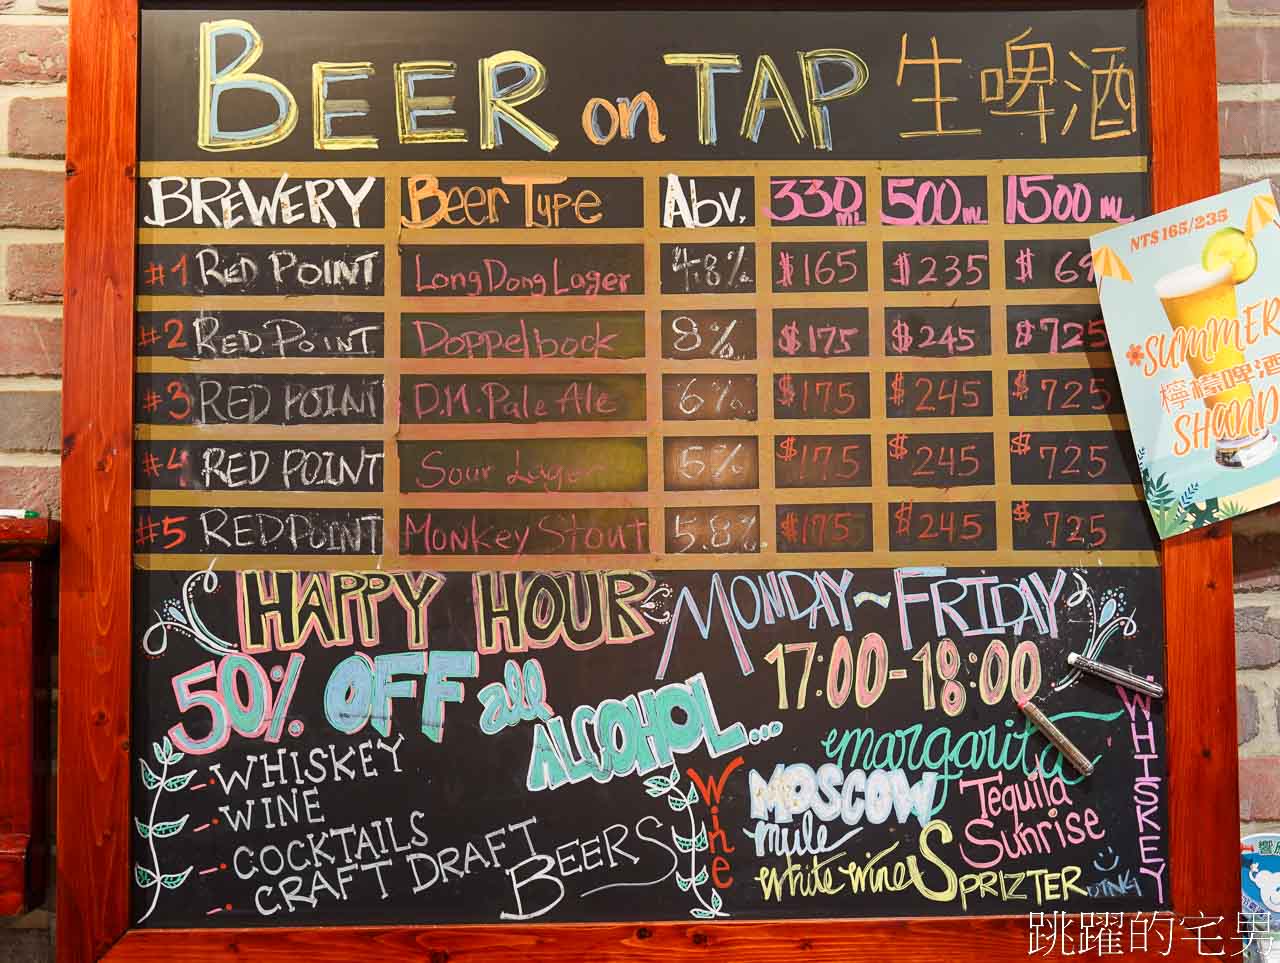 BEER on TAP 生啤酒
BREWERY Beer Type Abv. 330ML 500ML 1500ML
#1 RED POINT Long Dong Lager 4.8% $165 $235 $69
#2 RED POINT Doppelbock 8% $175 $245 $725
#3 RED POINT D.M. Pale Ale 6% $175 $245 $725
#4 RED POINT Sour Lager 5% $175 $245 $725
#5 RED POINT Monkey Stout 5.8% $175 $245 $725
NT$ 165/235
SUMMER
檸檬啤酒
SHAND
HAPPY HOUR MONDAY~FRIDAY
50% OFF all ALCOHOL... 17:00-18:00
- WHISKEY
- WINE
- COCKTAILS
- CRAFT DRAFT BEERS
Wine
margarita
MOSCOW mule
Tequila Sunrise
white wine SPRIZTER
WHISKEY
跳躍的宅男